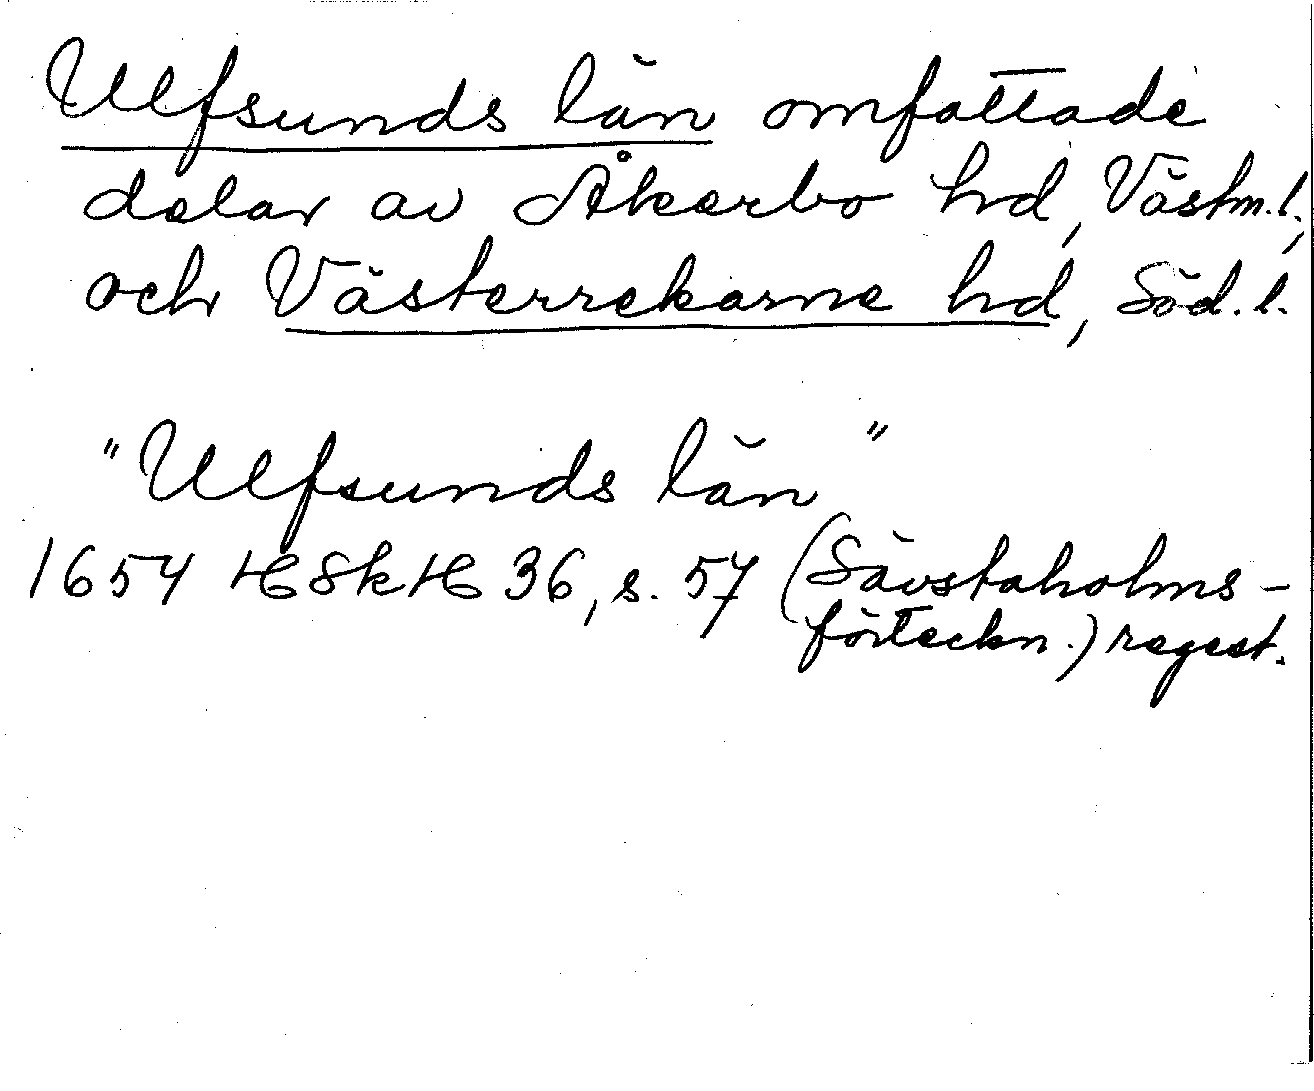 Ulfsunds län omfattade
delar av Åkerbo hd, Västm.l.,
och Västerrekarne hd, Söd.l.
"Ulfsunds län"
1654 HSkH 36, s. 57 (Sävstaholms-
förteckn.) regest.